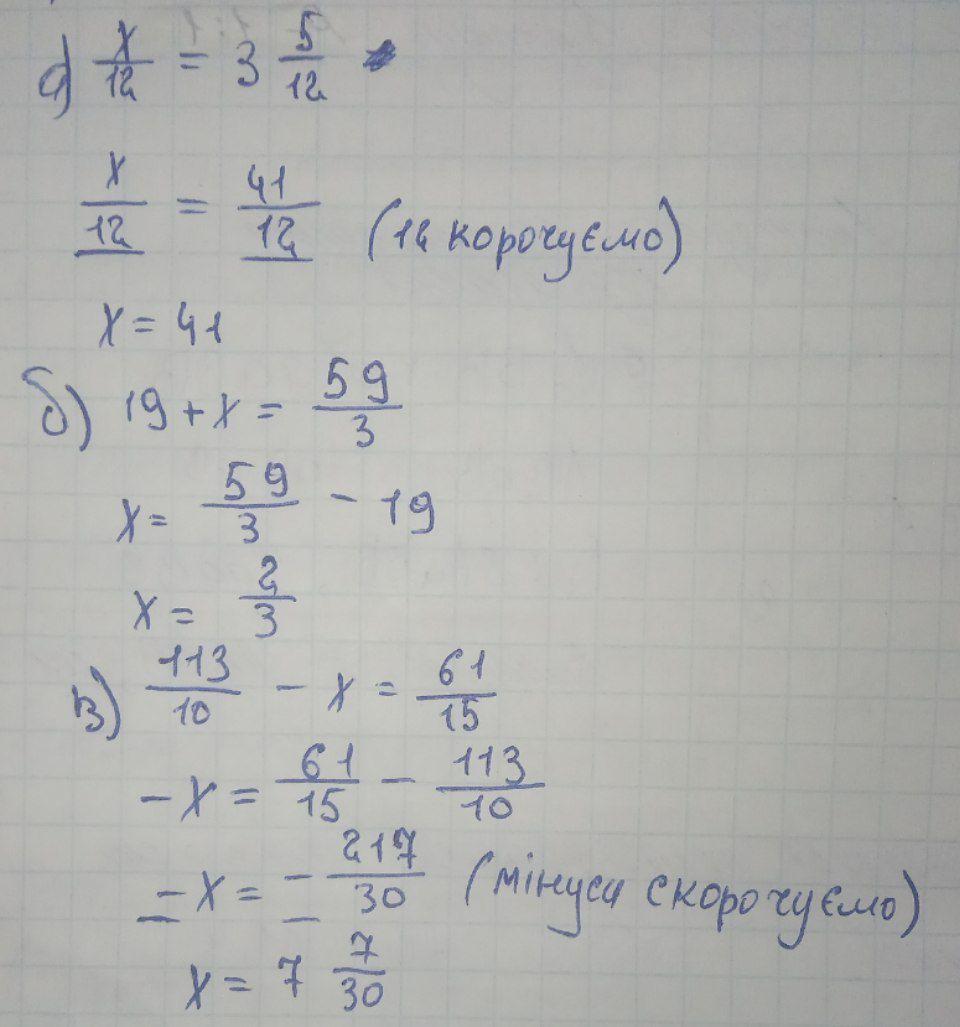 а) x/12 = 3 5/12
x/12 = 41/12 (12 корочуємо)
x = 41
б) 19 + x = 59/3
x = 59/3 - 19
x = 2/3
в) 113/10 - x = 61/15
-x = 61/15 - 113/10
-x = - 217/30 (мінуси скорочуємо)
x = 7 7/30